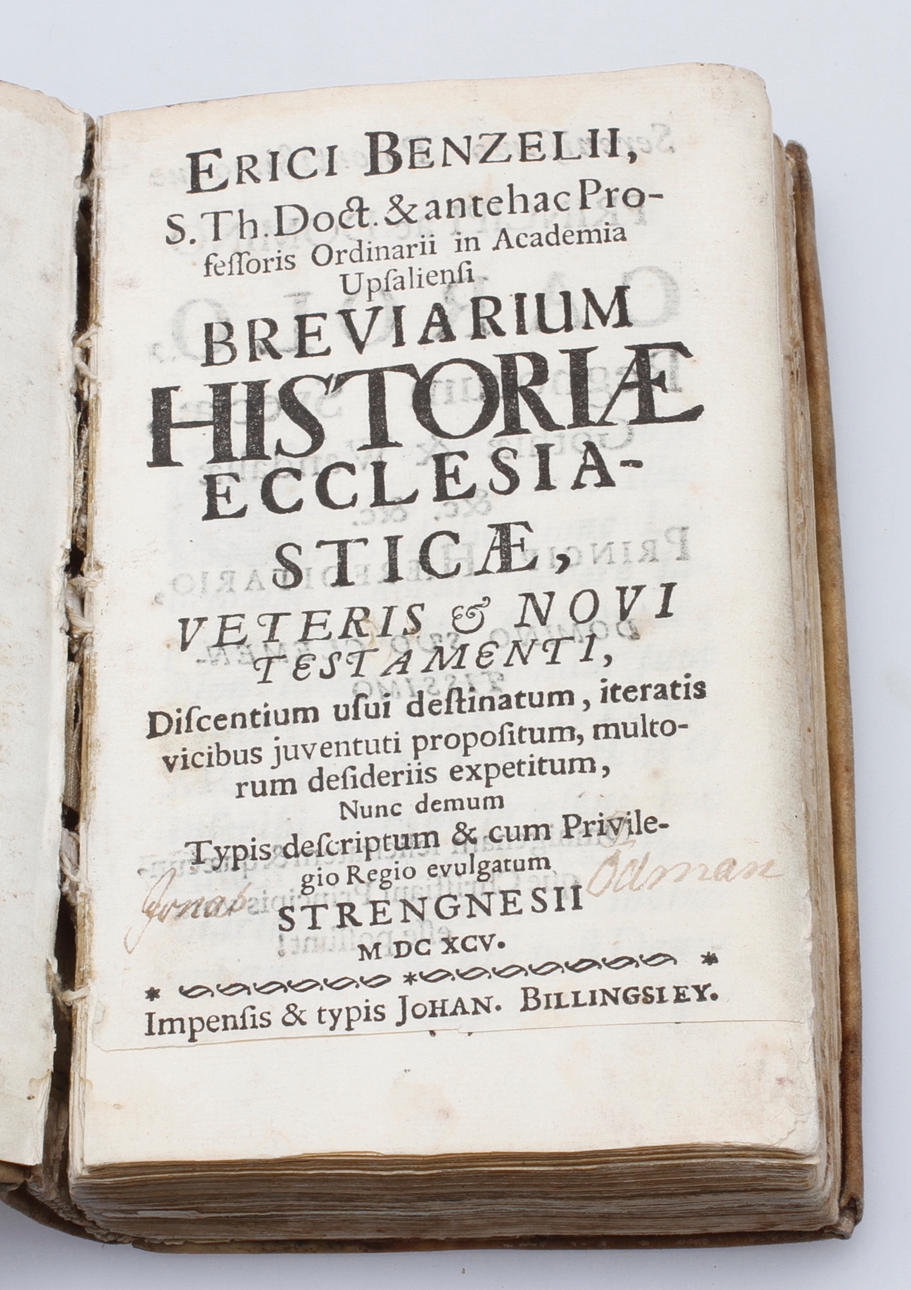 ERICI BENZELII,
S. Th. Doct. & antehac Pro-
feſſoris Ordinarii in Academia
Upſalienſi
BREVIARIUM
HISTORIÆ
ECCLESIA-
STICÆ,
VETERIS & NOVI
TESTAMENTI,
Diſcentium uſui deſtinatum, iteratis
vicibus juventuti propoſitum, multo-
rum deſideriis expetitum,
Nunc demum
Typis deſcriptum & cum Privile-
gio Regio evulgatum
Jonas Ödman
STRENGNESII
M DC XCV.
Impenſis & typis JOHAN. BILLINGSLEY.